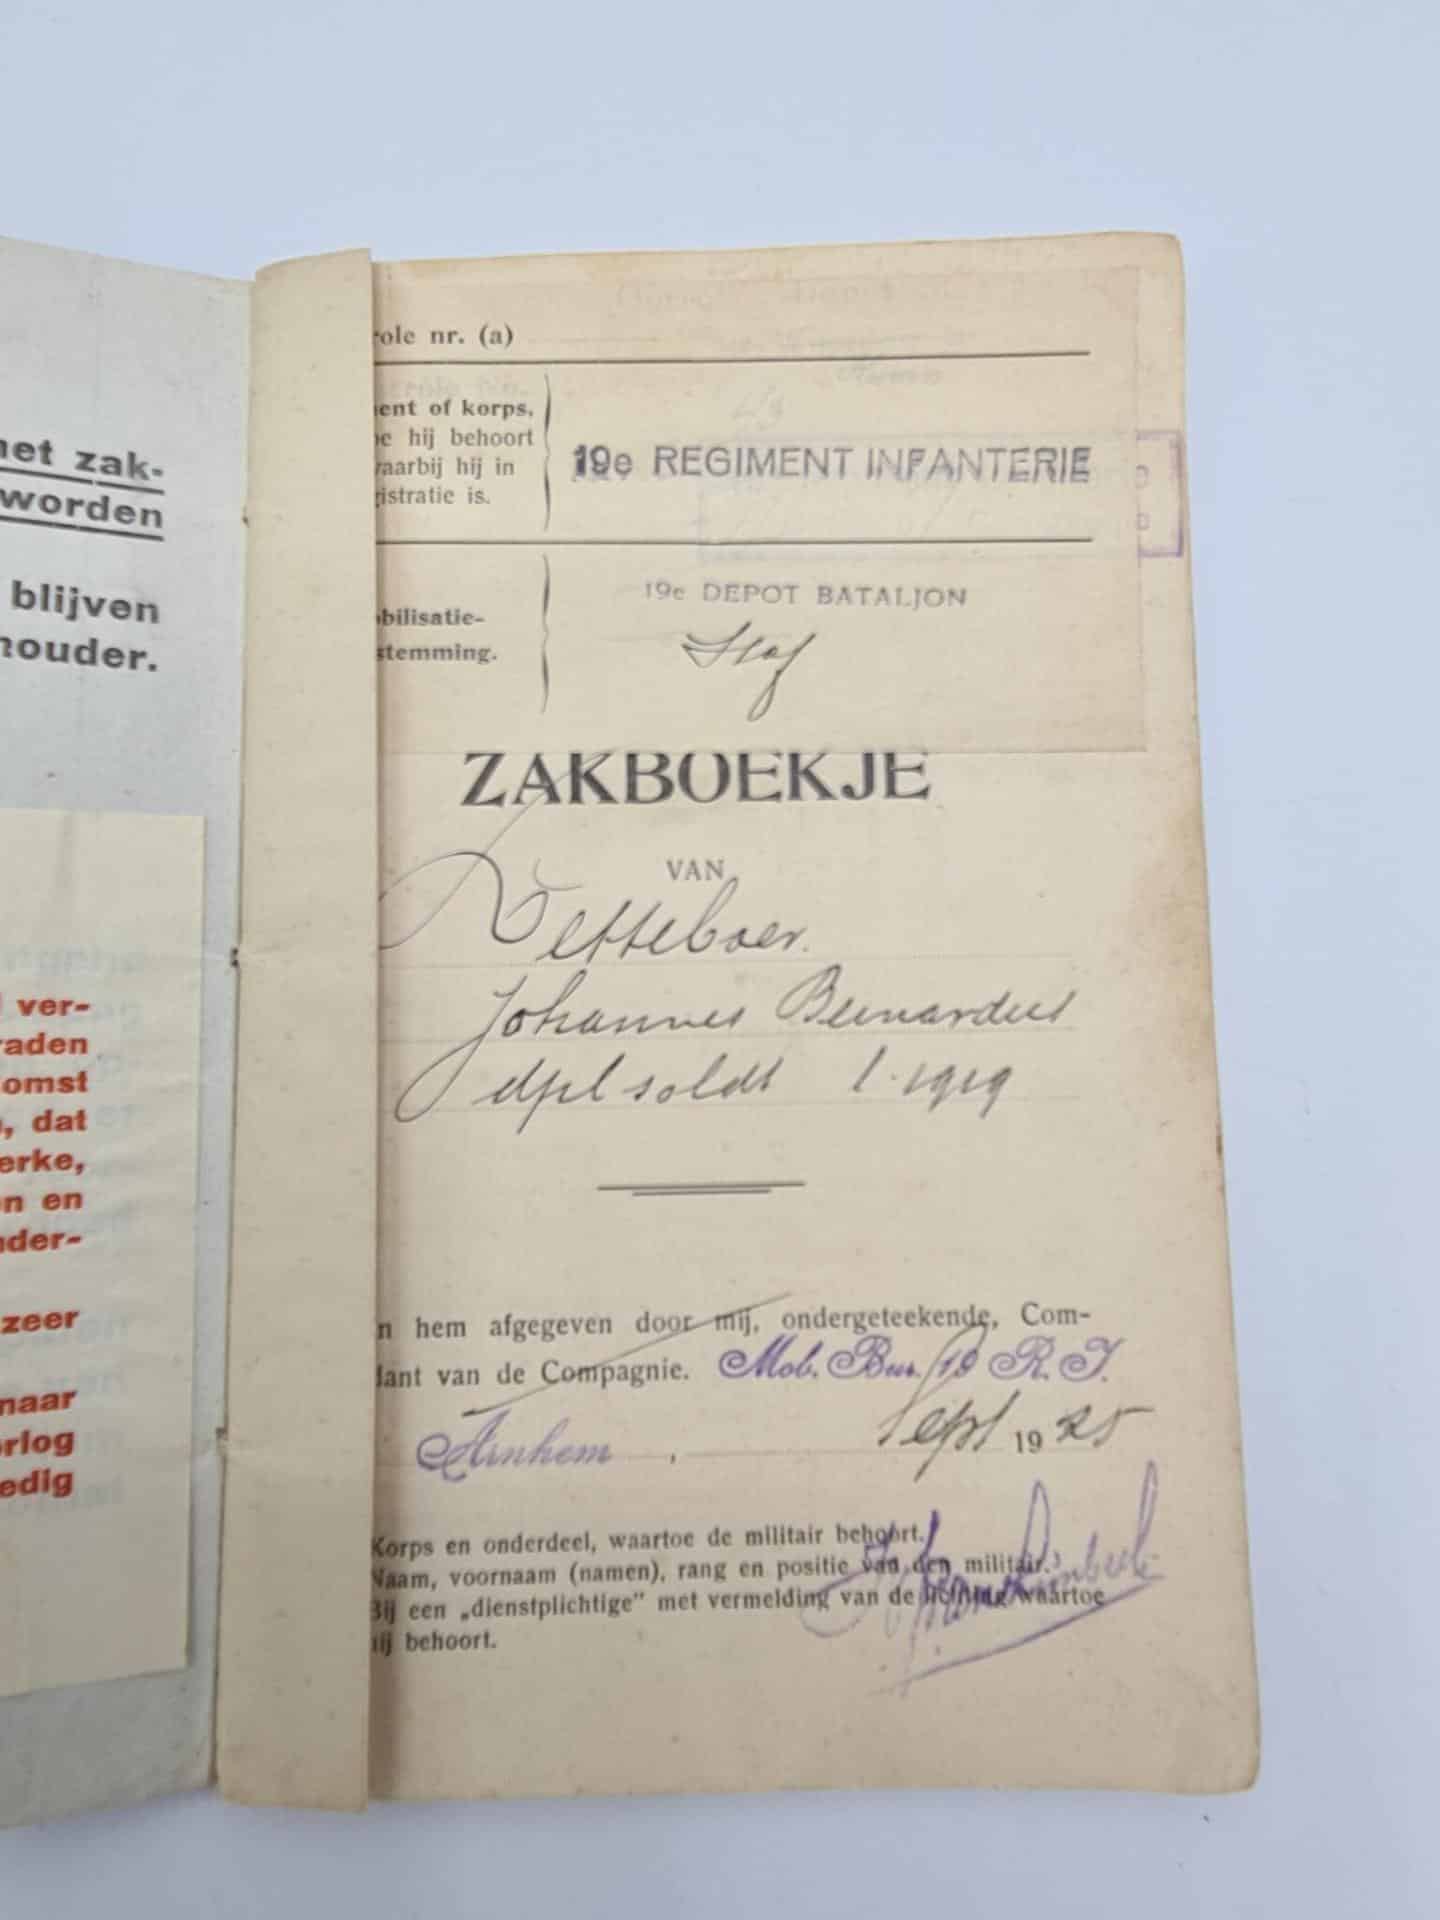 het zak-
worden
blijven
houder.
ver-
raden
omst
, dat
erke,
n en
nder-
zeer
naar
orlog
edig
role nr. (a)
ent of korps,
e hij behoort
waarbij hij in
gistratie is.
19e REGIMENT INFANTERIE
obilisatie-
stemming.
19e DEPOT BATALJON
Staf
ZAKBOEKJE
VAN
Netteboer.
Johannes Bernardus
dpl soldt l. 1919
n hem afgegeven door mij, ondergeteekende, Com-
dant van de Compagnie. Mob. Bur. 19 R. I.
Arnhem, Sept 1925
Korps en onderdeel, waartoe de militair behoort.
Naam, voornaam (namen), rang en positie van den militair.
Bij een „dienstplichtige" met vermelding van de lichting waartoe
hij behoort.